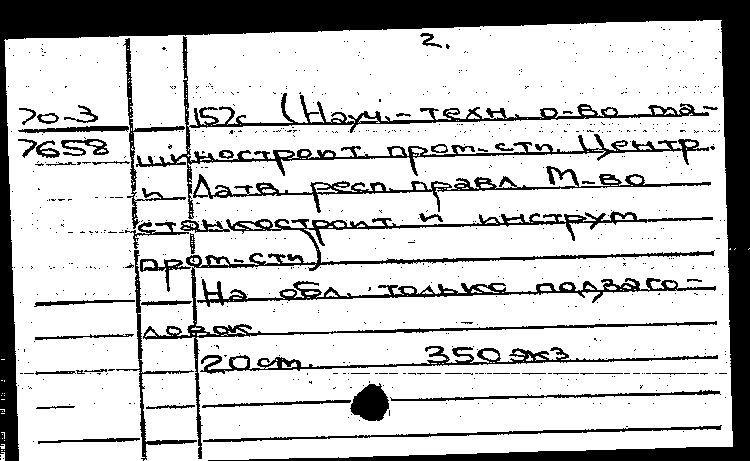 2.
70-3 157с (Науч.-техн. о-во ма-
7658 шиностроит. пром-сти. Центр.
и Латв. респ. правл. М-во
станкостроит. и инструм
пром-сти)
На обл. только подзаго-
ловок.
20 см. 350 экз